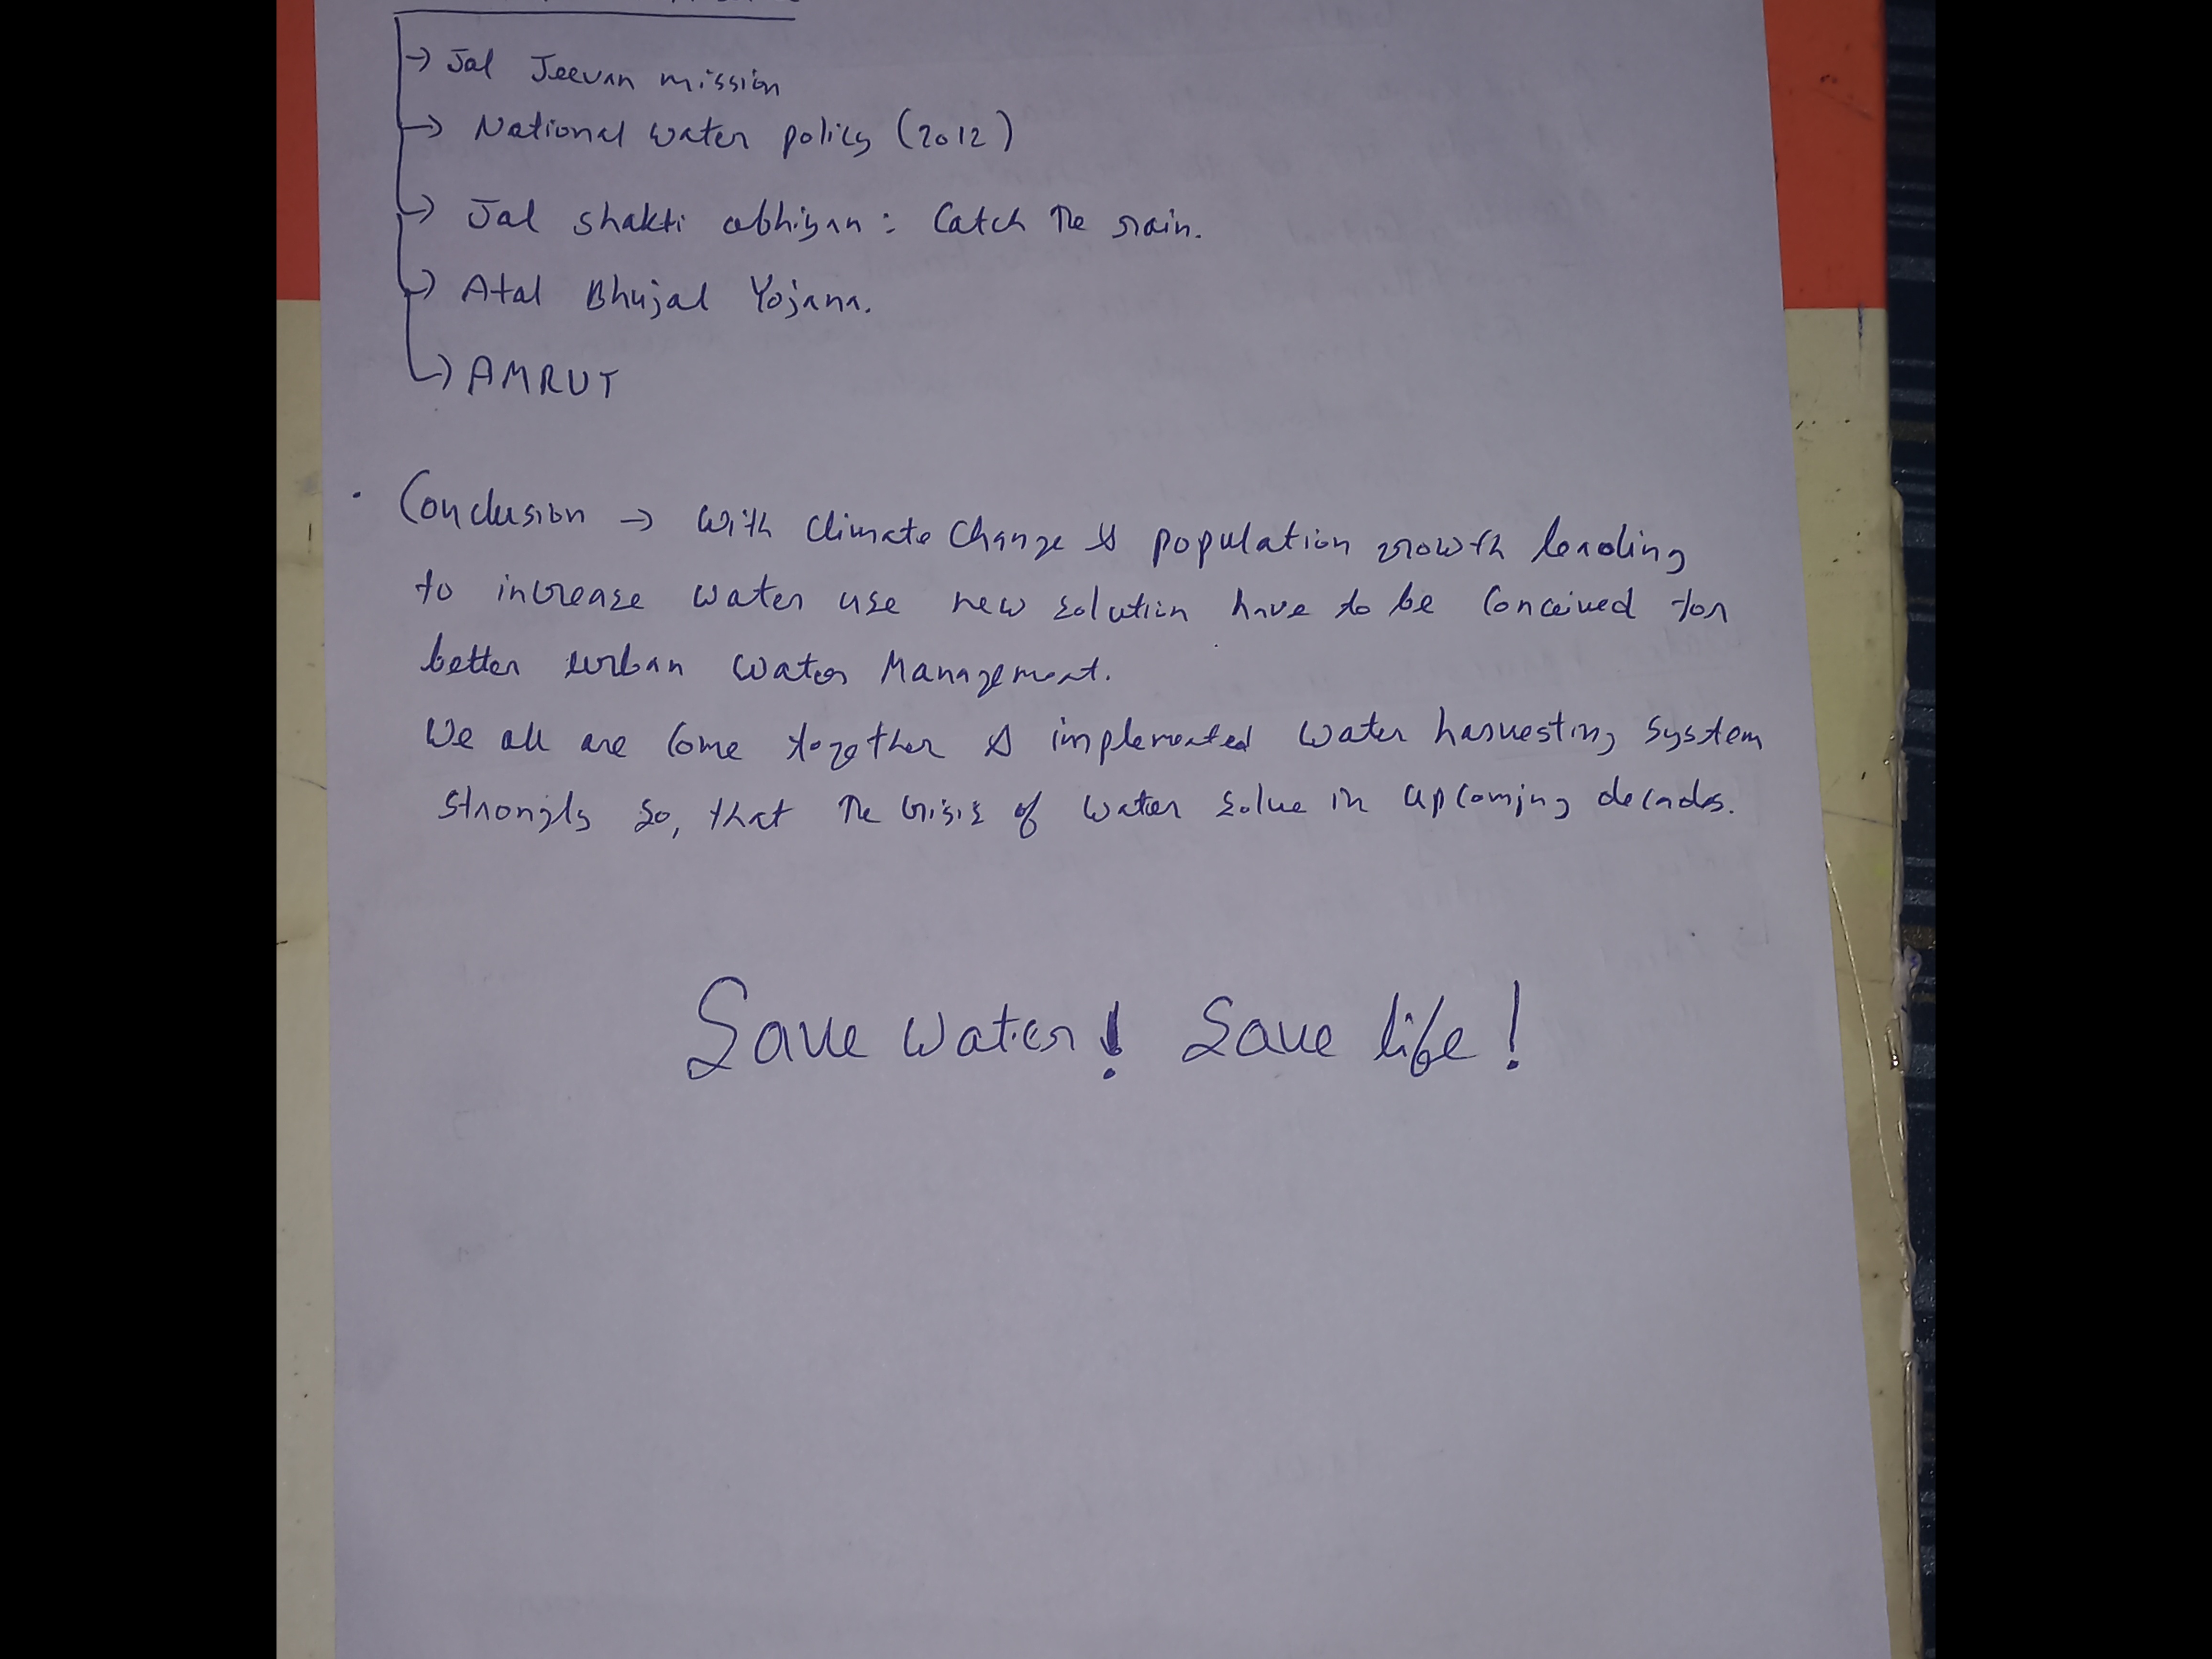 → Jal Jeevan mission
→ National water policy (2012)
→ Jal shakti abhiyan : Catch the rain.
→ Atal Bhujal Yojana.
→ AMRUT
. Conclusion → With Climate Change & population growth leading
to increase water use new solution have to be Conceived for
better urban water Management.
We all are Come together & implemented water harvesting system
strongly so, that the crisis of water solve in upcoming decades.
Save water! Save life!